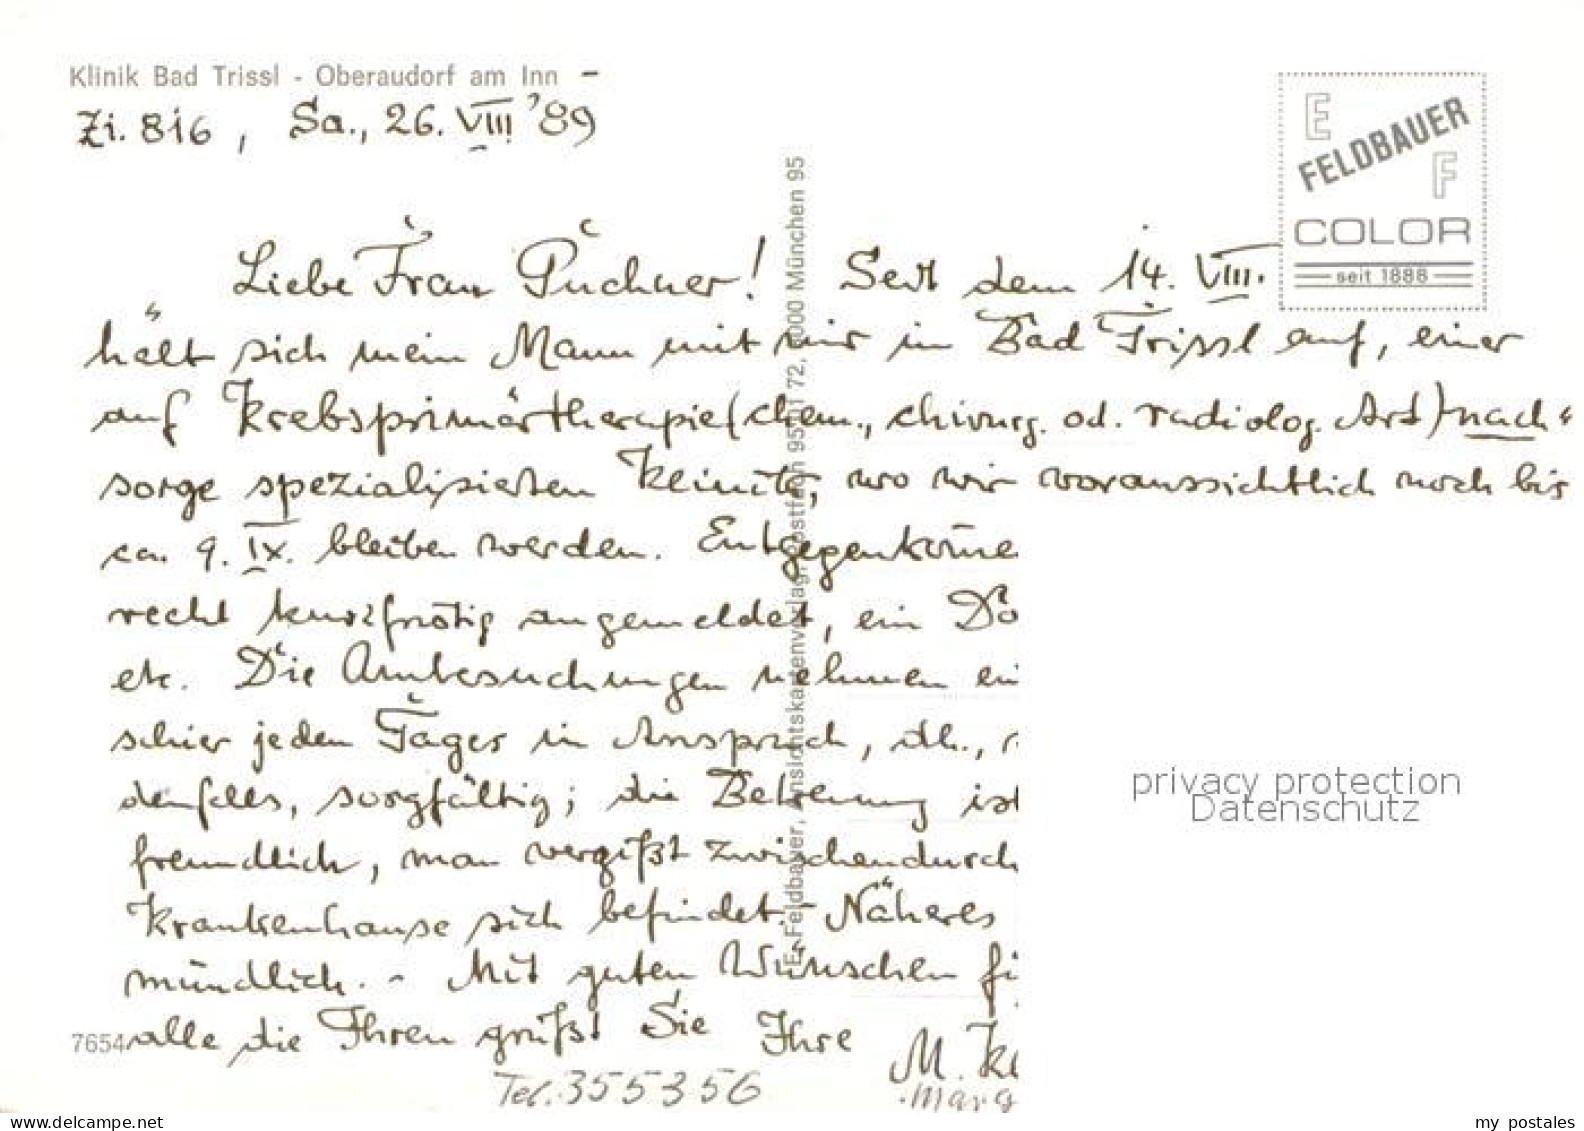 Klinik Bad Trissl - Oberaudorf am Inn -
Zi. 816, Sa., 26. VIII '89
E
FELDBAUER
F
COLOR
seit 1888
Liebe Frau Puchner! Seit dem 14. VIII.
hält sich mein Mann mit mir in Bad Trissl auf, einer
auf Krebsprimärtherapie (chem., chirurg. od. radiolog. Art) nach-
sorge spezialisierten Klinik, wo wir voraussichtlich noch bis
ca. 9. IX. bleiben werden. Entgegenkome
recht kurzfristig angemeldet, ein Do
etc. Die Untersuchungen nehmen ei
schier jeden Tages in Anspruch, dh.,
denfalls, sorgfältig; die Betreuung ist
freundlich, man vergißt zwischendurch
Krankenhause sich befindet. - Näheres
mündlich. - Mit guten Wünschen fü
alle die Ihren grüßt Sie Ihre
M. Kl
Tel. 355356
Marg
7654
E. Feldbauer, Ansichtskartenverlag, Postfach 95 01 72, 8000 München 95
privacy protection
Datenschutz
www.delcampe.net
my postales